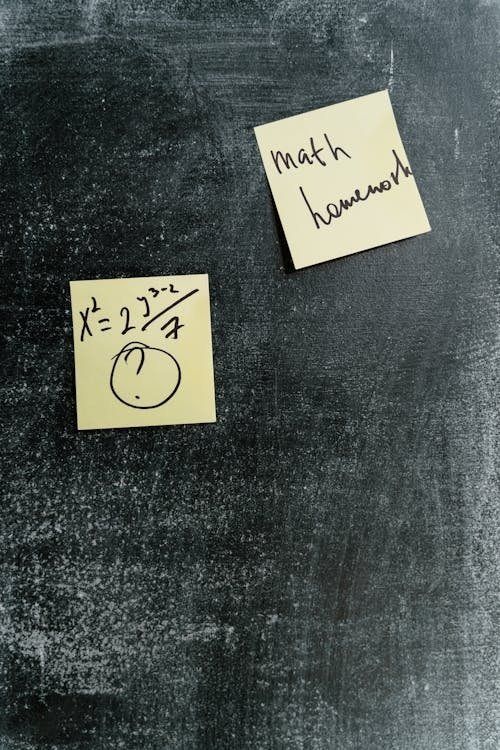 math
homework
x² = 2 y³⁻² / 7
?